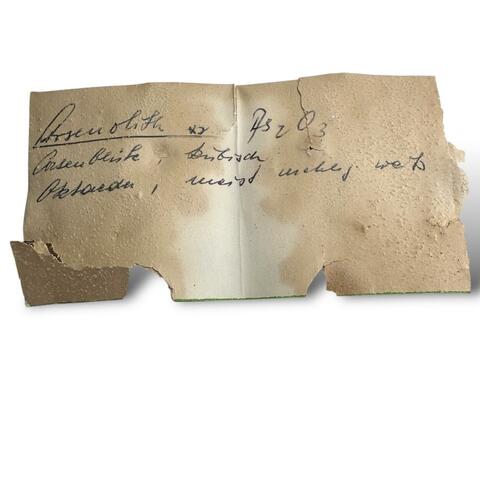 Arsenolith xx As2O3
Arsenblüte, kubisch
Oktaeder, meist mehlig weiß